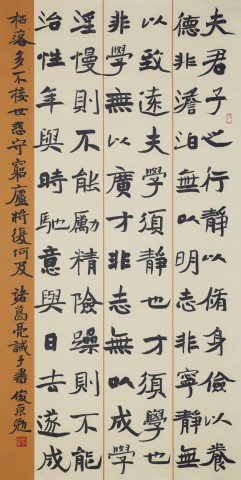 夫君子之行静以脩身儉以養
德非澹泊無以明志非寧静無
以致遠夫學須静也才須學也
非學無以廣才非志無以成學
淫慢則不能勵精險躁則不能
治性年與時馳意與日去遂成
枯落多不接世悲守窮廬將復何及 諸葛亮誡子書 俊京勉